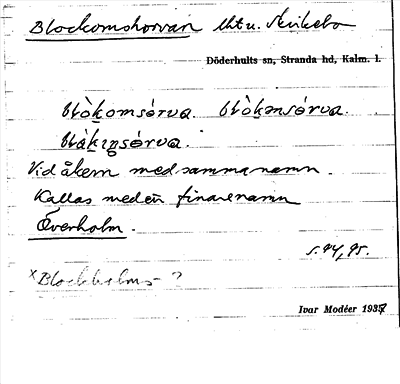 Blockomshorvan lht u. Århult
Döderhults sn, Stranda hd, Kalm. l.
blòkomsórva. blòkənsórva.
blàkıŋsórva.
Vid åkern med samma namn.
Kallas med ett finare namn
Överholm.
s. 94, 95.
x Blockholms- ?
Ivar Modéer 1937